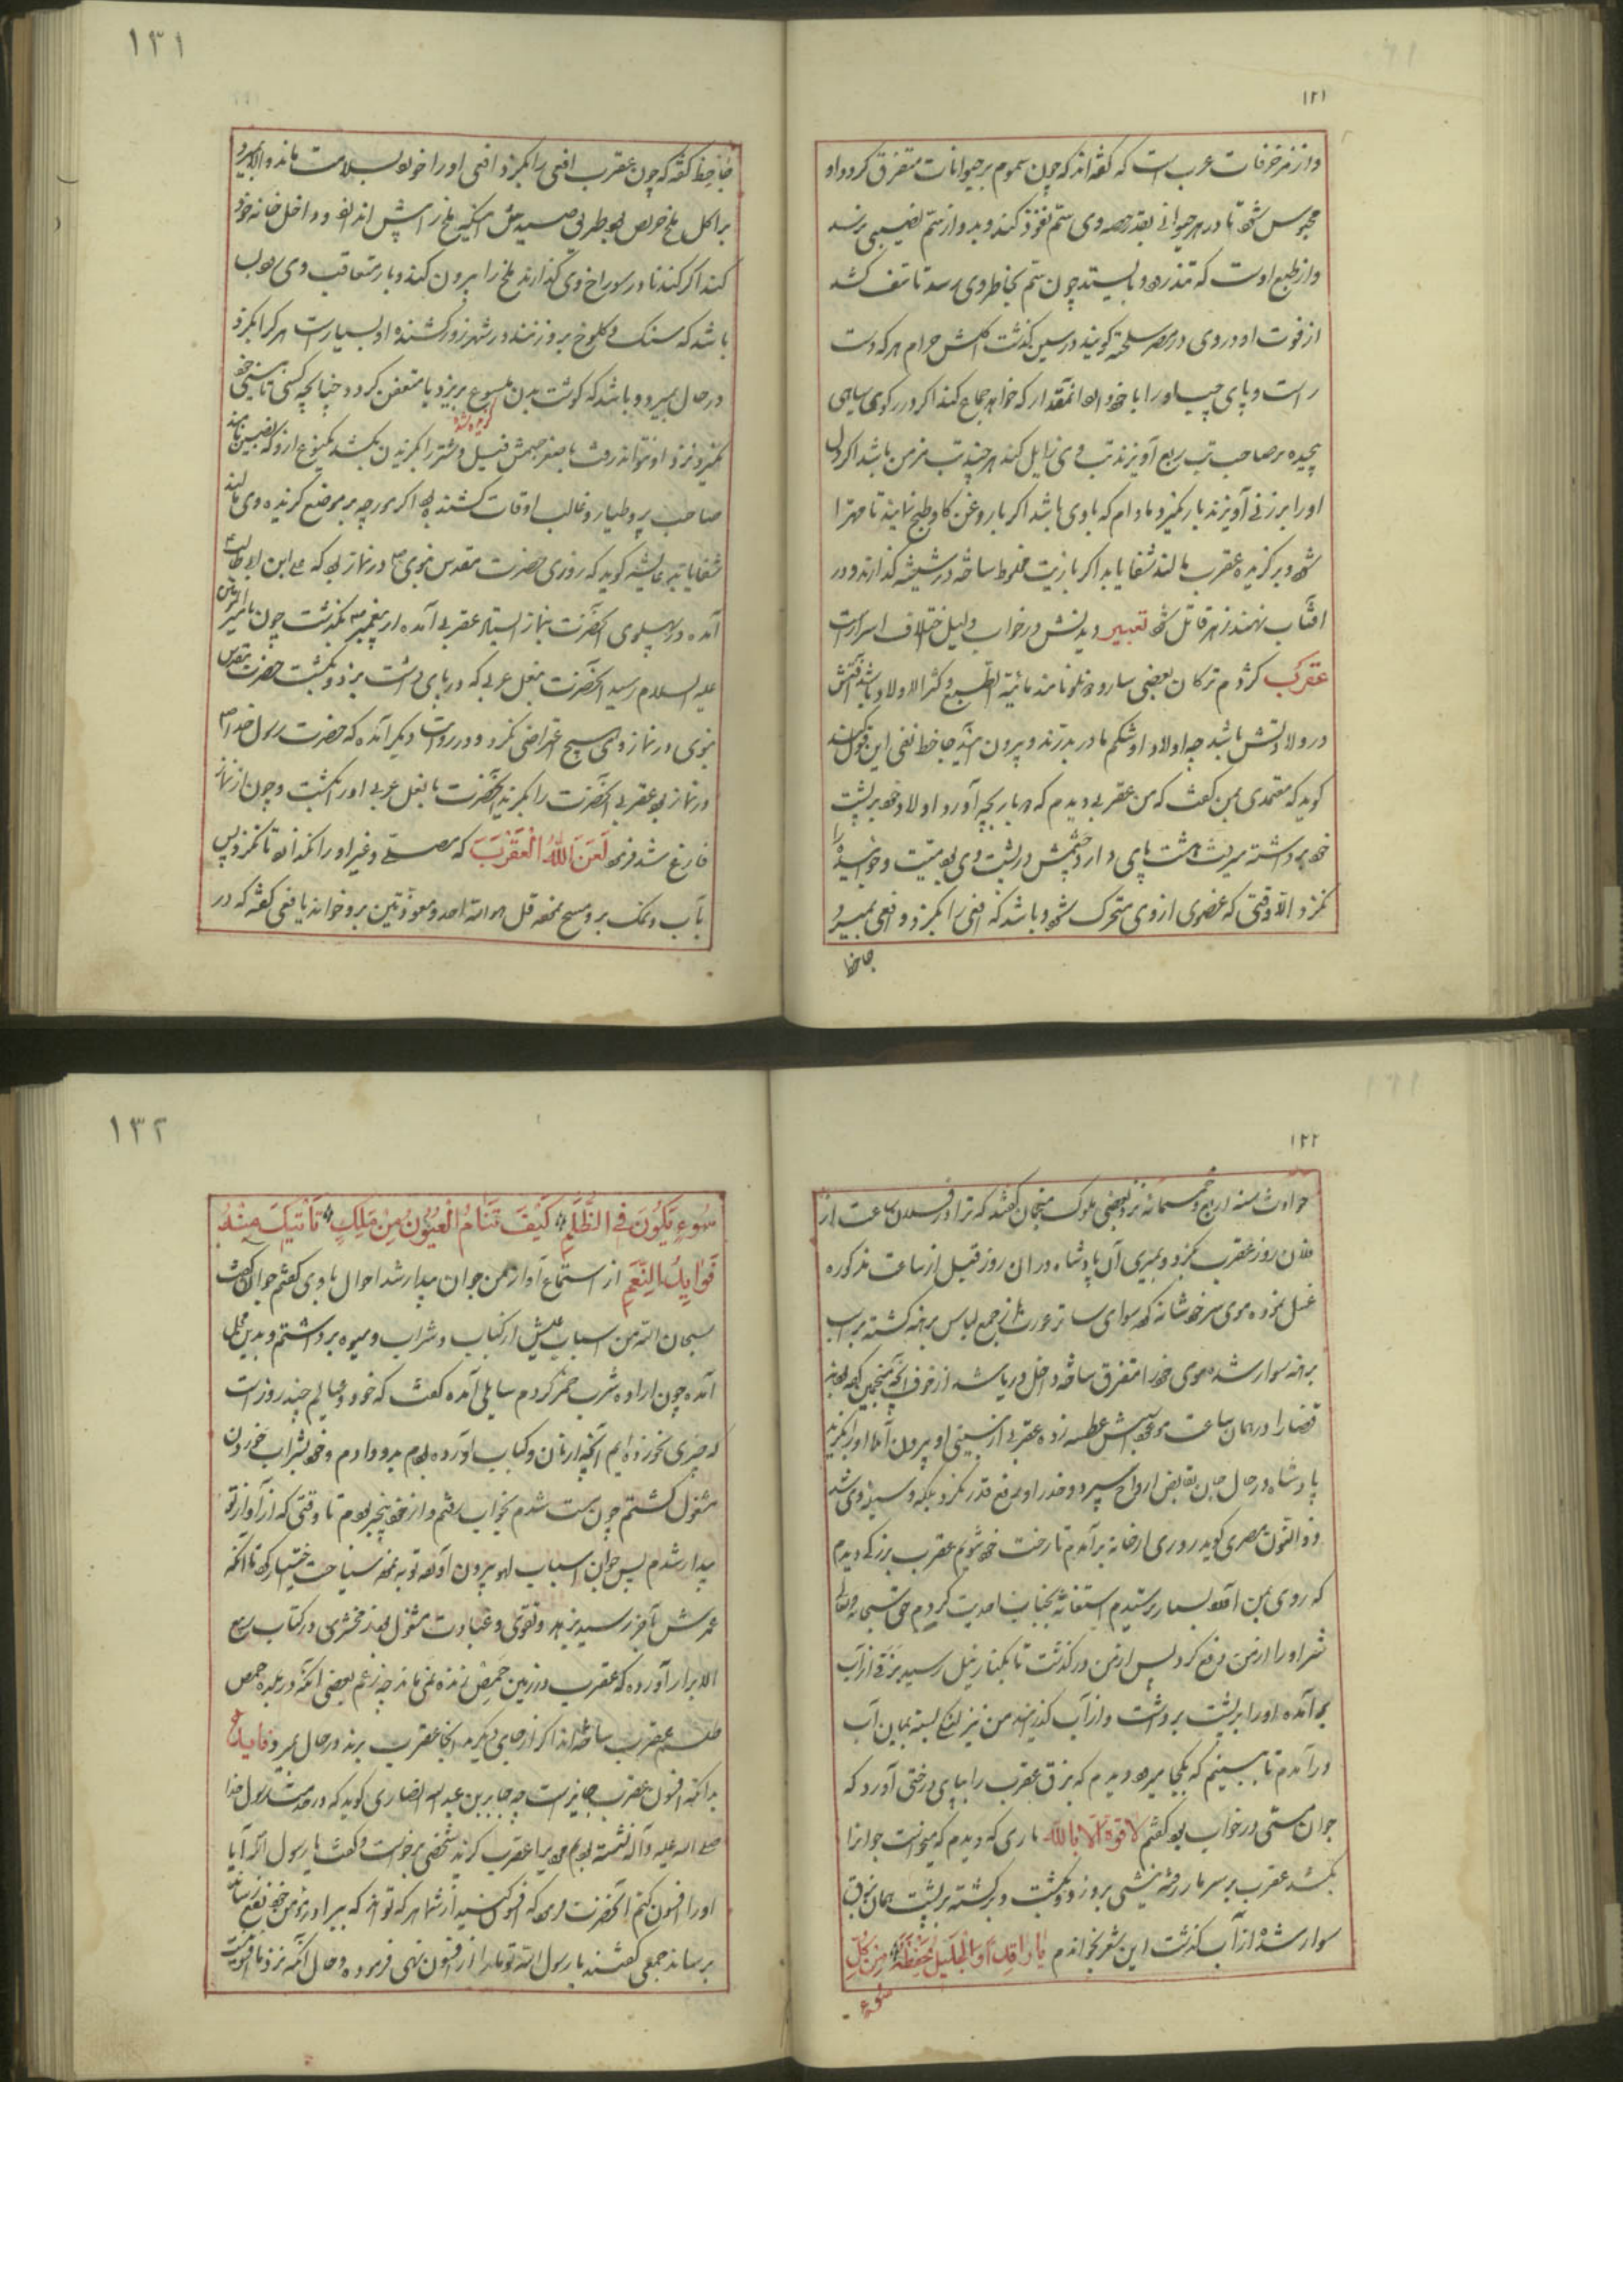 ۱۲۱
واز مزخرفات عرب است که گفته‌اند که چون سموم بر حیوانات متفرق کرد و او
محبوس شد تا در هر حیوانی بقدر حصه وی ستم نفوذ کند و بدو از ستم نصیبی نرسد
واز طبع اوست که و بایستد چون ستم بخاطر وی رسد تا متأسف کشد
از فوت او و در وی در مصر سلحفة کویند در سین کذشت اکلش حرام هر که دست
راست و پای چپ او را با خود انمقدار که خواهد جماع کند اکر در رکوی سیاهی
پیچیده بر صاحب تب ربع آویزند تب وی زایل کند هر چند تب مزمن باشد اکر دل
او را بر زنی آویزند بار نکیرد مادام که با وی باشد اکر با روغن کاو طبخ نمایند تا مهرا
شود و بر کزیده عقرب مالند شفا یابد اکر با زیت مخلوط ساخته در شیشه کذارند و در
افتاب نهند زهر قاتل شود تعبیر دیدنش در خواب دلیل اختلاف اسرار است
عقرب کژدم ترکان بعضی نامند مائیة الطبع و کثیر الاولاد باشد
در ولادتش باشد چه اولاد او شکم مادر بدرند و بیرون آیند جاحظ نفی این قول
کوید که معتمدی بمن کفت که من عقربی دیدم که هر بار بچه آورد اولاد خود بر پشت
خود برداشته میرفت هشت پای دارد و چشمش در پشت وی بود میت و خوابیده را
نکزد الا وقتی که عضوی از وی متحرک شود و باشد که افعی را بکزد و افعی بمیرد
جاحظ
۱۳۱
جاحظ کفته که چون عقرب افعی را بکزد افعی او را خورد بسلامت ماند و الا بمیرد
بر اکل ملخ حریص بود طریق صیدش انکه ملخ را پیش اندازد و داخل خانه خود
کند اکر کند تا در سوراخ وی کذارند ملخ را بیرون کند و باز متعاقب وی بود
باشد که سنک و کلوخ بر وزند و در شهر زور کشنده او بسیار است هر کرا بکزد
در حال بمیرد و باشد که کوشت بدن ملسوع بریزد یا متعفن کردد چنانچه کسی تا بینی خود
نکیرد نزد او نتواند رفت با صغر جسمش فیل و شتر را بکزیدن بکشد یکنوع از و که نصیبین باشد
صاحب پر و طیار و غالب اوقات کشنده بود اکر مورچه بر موضع کزیده وی مالند
شفا یابد عایشه کوید که روزی حضرت مقدس نبوی در نماز بود که علی ابن ابیطالب
آمده در پهلوی آنحضرت بنماز ایستاد عقربی آمده از پیغمبر بگذشت چون بامیر
علیه السلام رسید آنحضرت بنعل عربی که در پای داشت بزد و بکشت حضرت مقدس
نبوی در نماز وی هیچ اعتراضی نکرد و در روایت دیکر آمده که حضرت رسول خدا
در نماز بود عقربی آنحضرت را بکزید آنحضرت با نعل عربی او را بکشت و چون از نماز
فارغ شد فرمود لَعَنَ اللهُ الْعَقْرَبَ که مصلی و غیر او را نکذارد تا نکزد پس
بآب و نمک بر و مسح نمود قل هو الله احد و معوذتین بر و خواند یافعی کفته که در
۱۲۲
حوادث سنه اربع و خمسمائه نزد بعضی ملوک منجمان کفتند که ترا در فلان ساعت از
فلان روز عقرب بکزد و بمیری آن پادشاه در ان روز قبل از ساعت مذکوره
غسل نموده موی سر خود شانه کرد سوای ساتر عورت از جمیع لباس برهنه کشته بر اسب
برهنه سوار شده موی خود را متفرق ساخته داخل دریا شد از خوف آنچه منجمین کفته بودند
قضا را در همان ساعت موعود اسبش عطسه زده عقربی از بینی او بیرون آمد او را بکزید
پادشاه در حال جان بقابض ارواح سپرد و حذر او دفع قدر نکرد بلکه وسیله وی شد
ذو النون مصری کوید روزی از خانه برآمدم تا رخت خود شویم عقرب بزرکی دیدم
که روی بمن آورد بسیار ترسیدم استغاثه بجناب احدیت کردم حق سبحانه وتعالی
شر او را از من دفع کرد پس از من درکذشت تا بکنار نیل رسید بزقی از آب
برآمده او را بر پشت برداشت و از آب کذرانید من نیز لنکی بسته بمیان آب
درآمدم تا ببینم که بکجا میرود دیدم که بزق عقرب را بپای درختی آورد که
جوان مستی در خواب بود کفتم لا قوة الا بالله ماری که دیدم که میخواست جوانرا
بکشد عقرب بر سر مار رفته نیشی بر وزد و بکشت و برکشته بر پشت همان بزق
سوار شده از آب کذشت این شعر بخواندم یَا رَاقِدًا وَالْجَلِیلُ یَحْفَظُهُ مِنْ کُلِّ
سُوءٍ
۱۳۲
سُوءٍ یَکُونَ فِی الظُّلَمِ کَیْفَ تَنَامُ الْعُیُونُ مِنْ مَلِکٍ تَأْتِیکَ مِنْهُ
فَوَایِدُ النِّعَمِ از استماع آواز من جوان بیدار شد احوال با وی کفتم جوان کفت
سبحان الله من اسباب عیش از کباب و شراب و میوه برداشتم و بدین محل
آمده چون اراده شرب خمر کردم سایلی آمده کفت که خود و عیالم چند روز است
که چیزی نخورده‌ایم آنچه از نان و کباب آورده بودم بدو دادم و خود بشراب خوردن
مشغول کشتم چون مست شدم بخواب رفتم و از خود بیخبر بودم تا وقتی که از آواز تو
بیدار شدم پس جوان اسباب لهو بیرون آورده توبه نموده سیاحت اختیار کرد تا آنکه
عمرش بآخر رسید بزهد و تقوی و عبادت مشغول بود زمخشری در کتاب ربیع
الابرار آورده که عقرب در زمین حمص زنده نمی‌ماند چه زعم بعضی آنکه در بلده حمص
طلسم عقرب ساخته‌اند اکر از جای دیکر بد انجا عقرب برند در حال بمیرد فایده
بدانکه افسون عقرب جایز است چه جابر بن عبد الله انصاری کوید که در خدمت رسول خدا
صلی الله علیه وآله نشسته بودم مردی را عقرب کزید شخصی برخواست و کفت یا رسول الله آیا
او را افسون کنم آنحضرت فرمود که افسون کنید از شما هر که تواند که ببرادر مؤمن خود نفع رساند
برساند جمعی کفتند یا رسول الله تو ما را از افسون نهی فرموده و حال آنکه نزد ما افسون هست